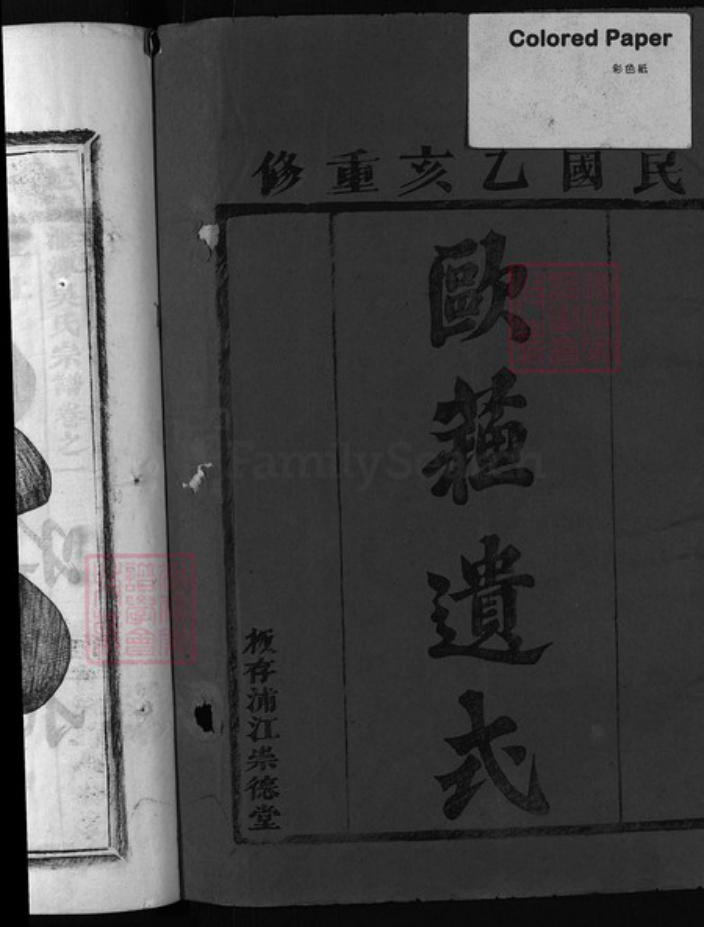 Colored Paper
彩色紙
民國乙亥重修
歐蘓遺式
板存浦江崇德堂
吳氏宗譜卷之一
FamilySearch